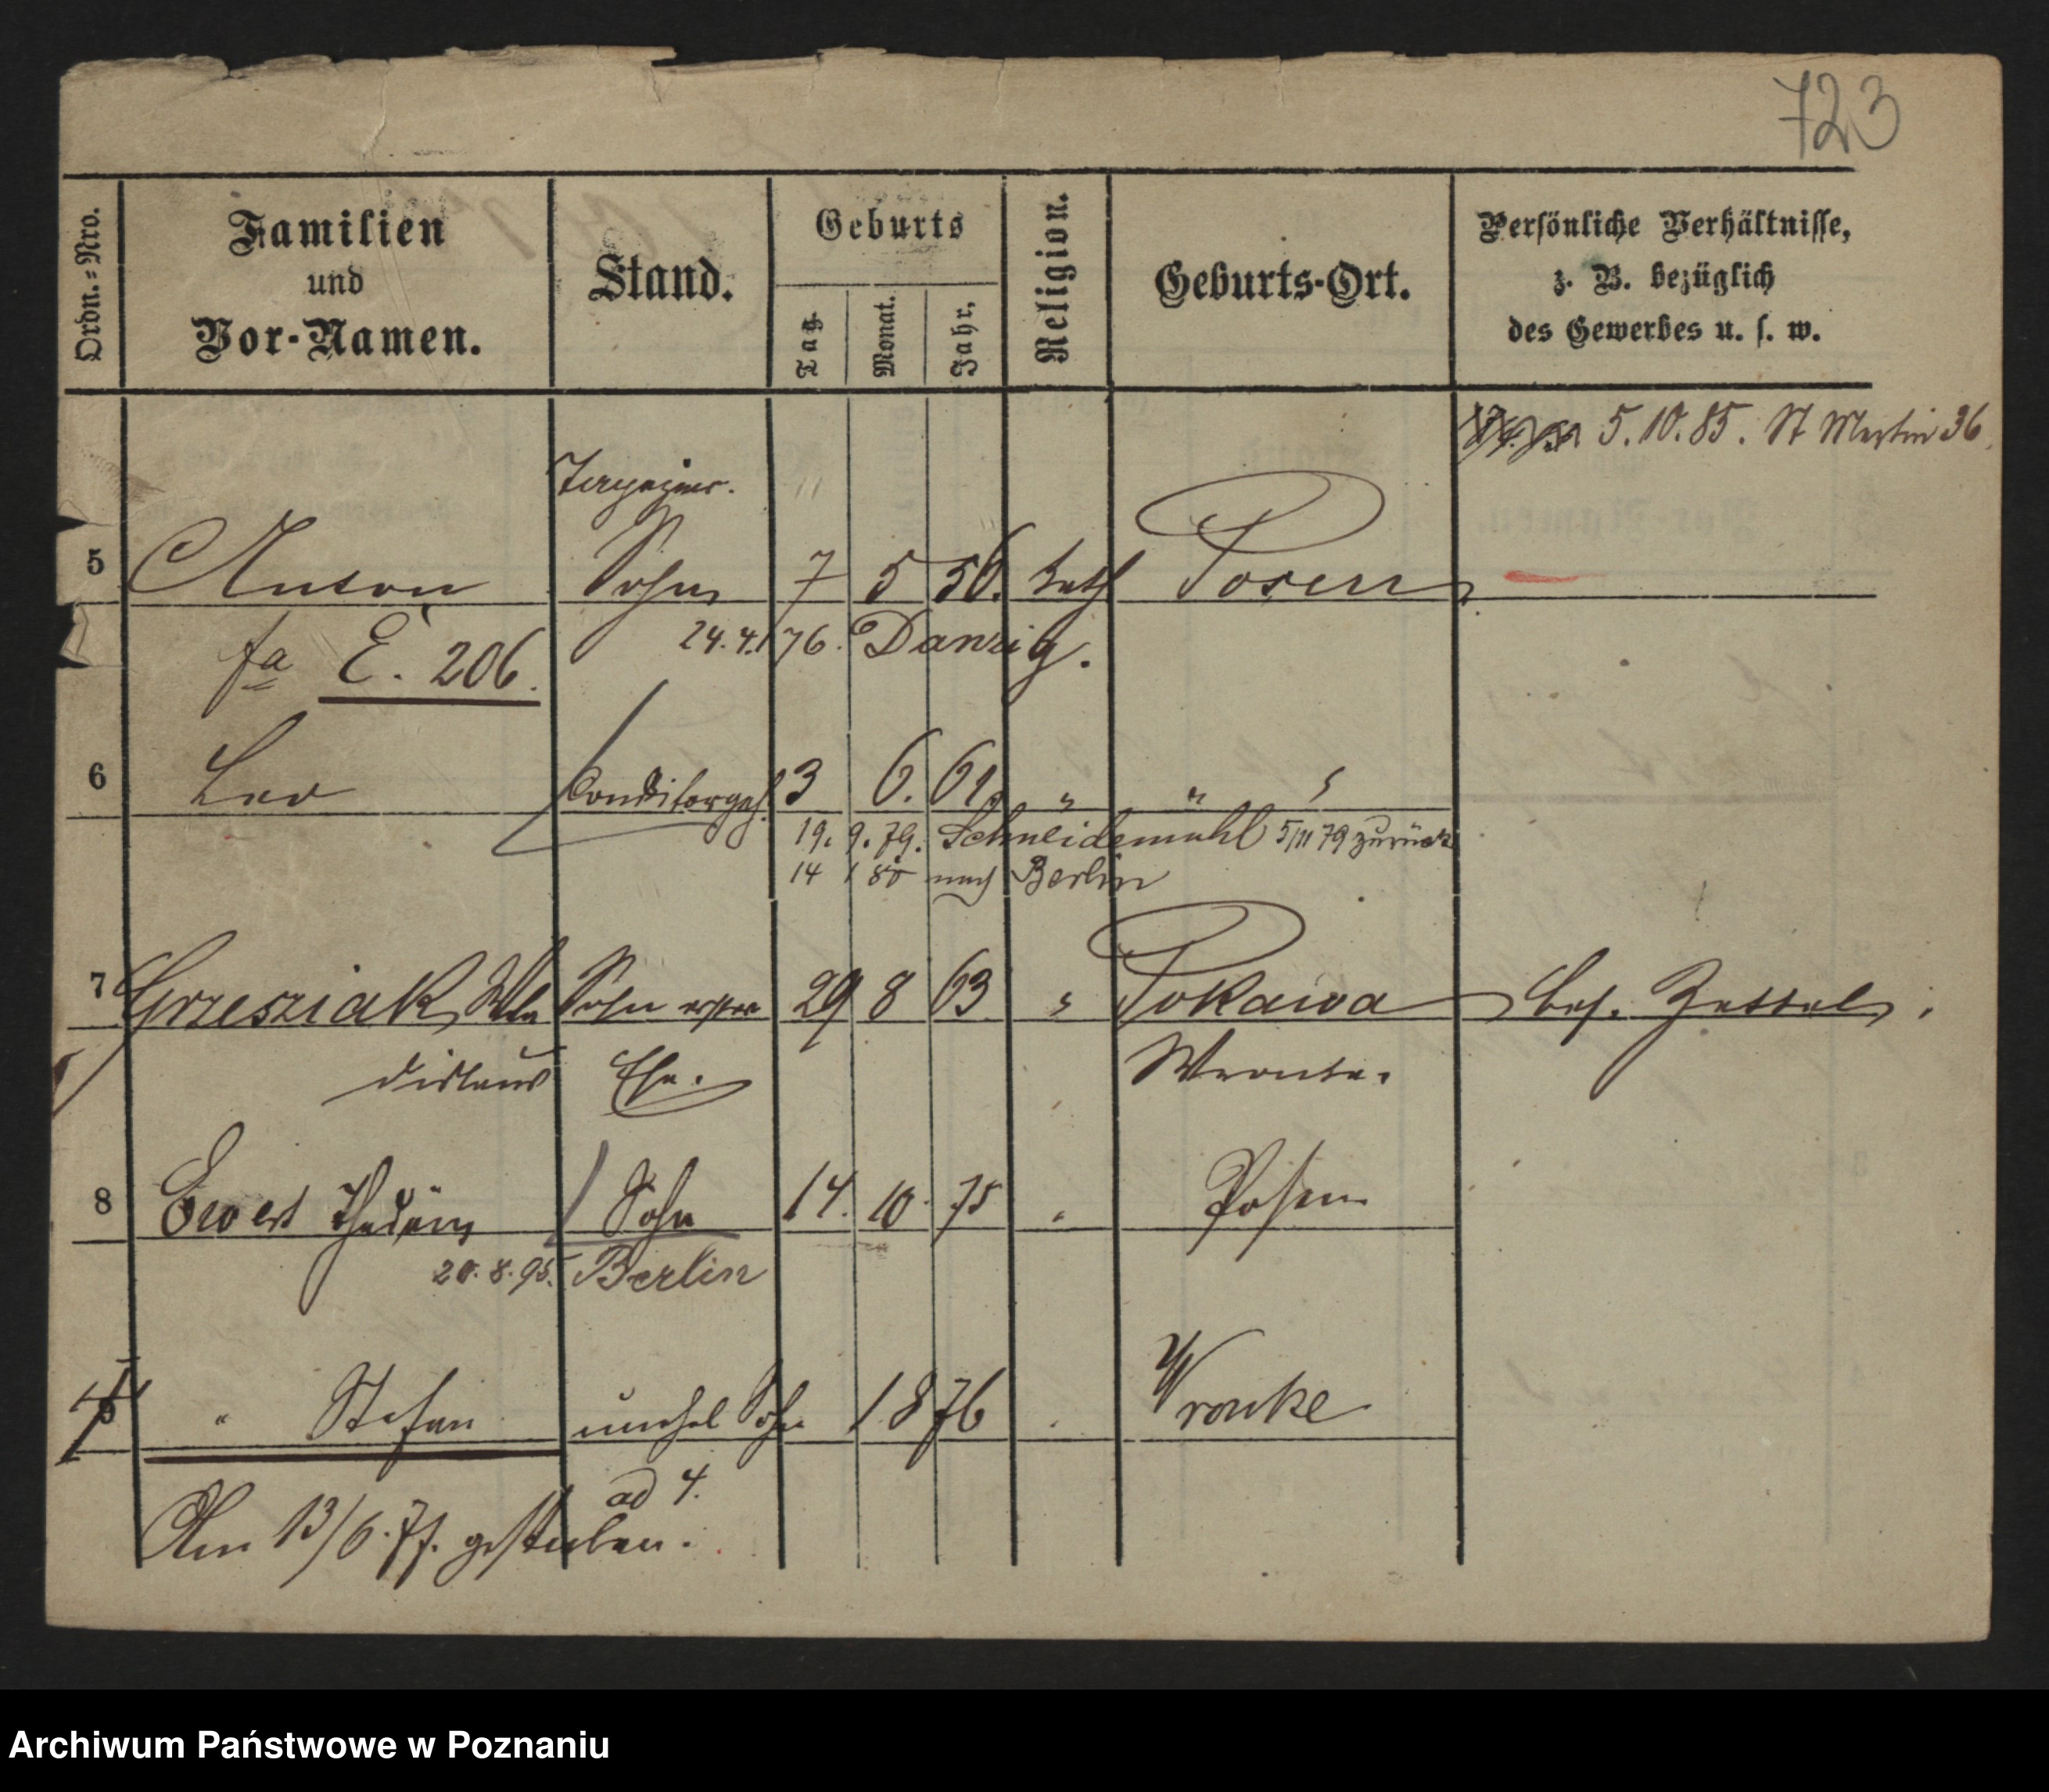 723
Ordn.=Nro.
Familien
und
Vor-Namen.
Stand.
Geburts
Tag.
Monat.
Jahr.
Religion.
Geburts-Ort.
Persönliche Verhältnisse,
z. B. bezüglich
des Gewerbes u. s. w.
5.10.85. St Martin 36
5 Anton Sohn 7 5 56. kath Posen
fa E. 206. 24.4.76. Danzig.
6 Leo Conditorgeh. 3 6. 61. " " "
19. 9. 79. Schneidemühl 5/11 79 zurück
14 1 80 nach Berlin
7 Grzesziak, Wla Sohn erster 29 8 63 " Pokawa bes. Zettel.
dislaus Ehe. Wronke.
8 Ewert Sohn 14. 10. 75 " Posen
20. 8. 95. Berlin
" Stefan unehel Sohn 1876 " Wronke
ad 4.
Am 13/6.77. gestorben.
Archiwum Państwowe w Poznaniu